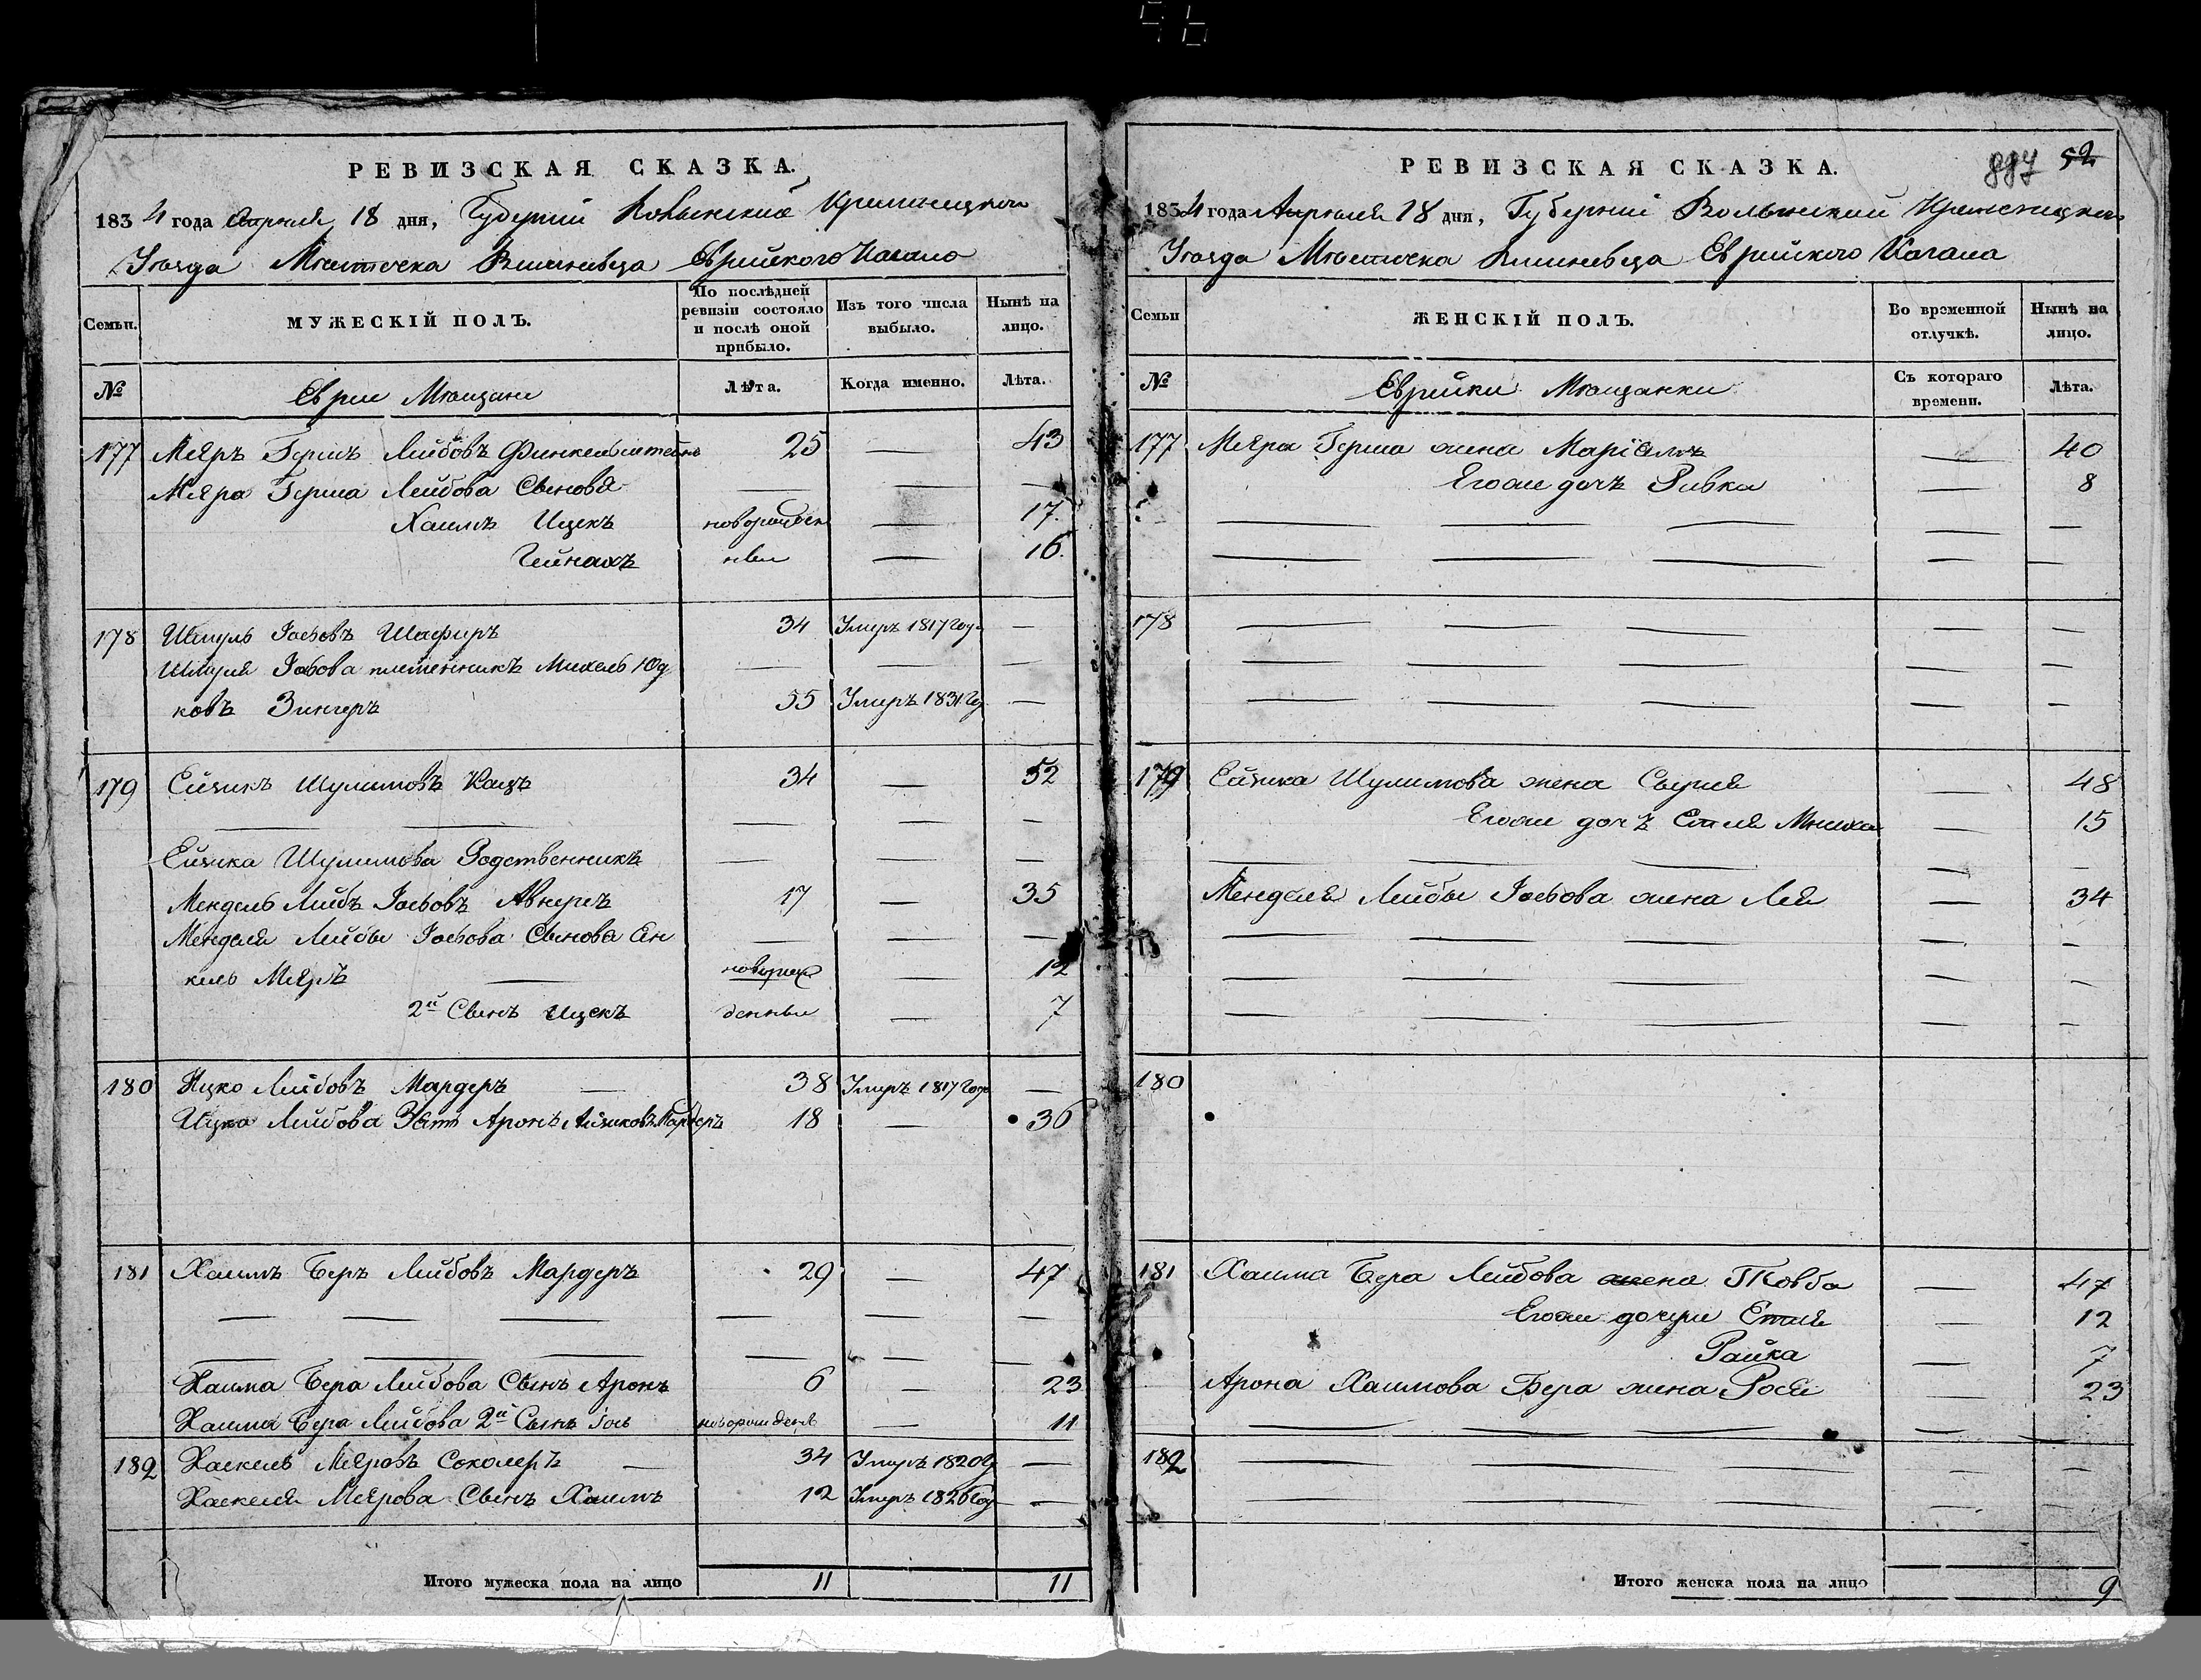 РЕВИЗСКАЯ СКАЗКА.
1834 года Апреля 18 дня, Губернии Волынской Кременецкого
Уезда Местечка Вишневца Еврейского Кагала
Семьи.
МУЖЕСКІЙ ПОЛЪ.
По послѣдней ревизіи состояло и послѣ оной прибыло.
Изъ того числа выбыло.
Нынѣ на лицо.
№
Евреи Мещане
Лѣта.
Когда именно.
Лѣта.
177 Меяръ Гершъ Лейбовъ Финкельштейнъ 25 — 43
Меяра Герша Лейбова Сыновя — — —
Хаимъ Ицекъ новорожден — 17.
Гейнахъ ныи — 16.
178 Шмуль Іосьовъ Шафиръ 34 Умеръ 1817 Году —
Шмуля Іосьова племенникъ Михель Юд — — —
ковъ Зингеръ 55 Умеръ 1831 Го —
179 Ейзикъ Шулимовъ Кацъ 34 — 52
— — — — —
Ейзика Шулимова Родственникъ — — —
Мендель Лейбъ Іосьовъ 17 — 35
Менделя Лейбы Іосьова Сынова Ян — — —
кель Меяръ — новорож — 12
2й Сынъ Ицекъ денныи — 7
180 Ицко Лейбовъ Мардеръ — 38 Умеръ 1817 Году —
Ицка Лейбова Зять Аронъ Айзиковъ Мардеръ 18 — 36
181 Хаимъ Беръ Лейбовъ Мардеръ 29 — 47
— — — — — —
— — — — — —
Хаима Бера Лейбова Сынъ Аронъ 6 — 23
Хаима Бера Лейбова 2й Сынъ Іось новорожденъ — 11
182 Хаскель Меяровъ — 34 Умеръ 1820 Го —
Хаскеля Меярова Сынъ Хаимъ 12 Умеръ 1826 Году —
Итого мужеска пола на лицо 11 11
887 52
РЕВИЗСКАЯ СКАЗКА.
1834 года Апреля 18 дня, Губерніи Волынской Кременецкого
Уезда Местечка Вишневца Еврейского Кагала
Семьи
ЖЕНСКІЙ ПОЛЪ.
Во временной отлучкѣ.
Нынѣ на лицо.
№
Еврейки Мещанки
Съ котораго времени.
Лѣта.
177 Меяра Герша жена Маріямъ — 40
Егоже дочъ Ривка — 8
— — — — —
— — — — —
178 — — — — —
— — — — —
— — — — —
179 Ейзика Шулимова жена Сыреля — 48
Егоже дочъ Естля — 15
— — — — —
Менделя Лейбы Іосьова жена Лея — 34
— — — — —
— — — — —
— — — — —
180
181 Хаима Бера Лейбова жена Товба — 47
Егоже дочери Естля — 12
Райка — 7
Арона Хаимова Бера жена Рося — 23
— — — — —
182 — — — — —
— — — — —
Итого женска пола на лицо 9